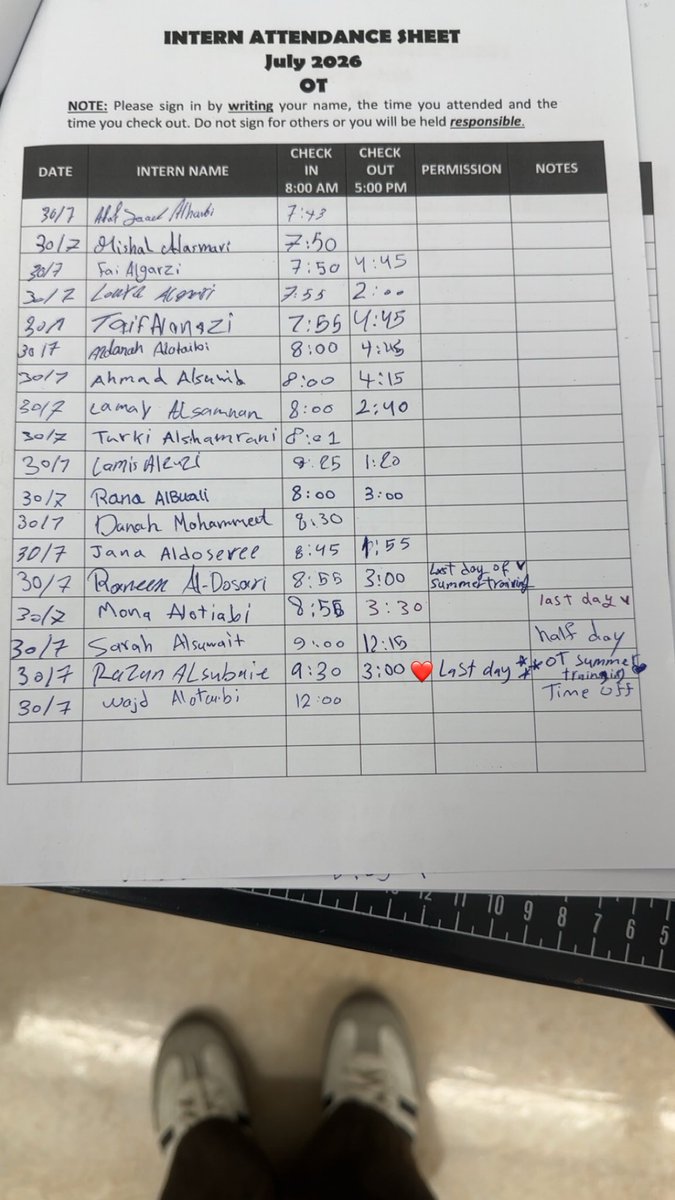 INTERN ATTENDANCE SHEET
July 2026
OT
NOTE: Please sign in by writing your name, the time you attended and the
time you check out. Do not sign for others or you will be held responsible.
DATE INTERN NAME CHECK IN 8:00 AM CHECK OUT 5:00 PM PERMISSION NOTES
30/7 Saad Alharbi 7:43
30/7 Mishal Alasmari 7:50
30/7 Fai Algarzi 7:50 4:45
30/7 7:55 2:00
30/7 Taif Alanazi 7:55 4:45
30/7 Aldanah Alotaibi 8:00 4:45
30/7 Ahmad 8:00 4:15
30/7 Lamay Alsamnan 8:00 2:40
30/7 Turki Alshamrani 8:01
30/7 Lamis 1:20
30/7 Rana AlBuali 8:00 3:00
30/7 Danah Mohammed 8:30
30/7 Jana Aldoseree 8:45 1:55
30/7 Raneen Al-Dosari 8:55 3:00 Last day of summer training
30/7 Mona Alotiabi 8:55 3:30 last day
30/7 Sarah Alsuwait 9:00 12:15 half day
30/7 Razan ALsubaie 9:30 3:00 ❤️ Last day ** **OT summer training
30/7 Wajd Alotaibi 12:00 Time off
12 11 10 9 8 7 6 5